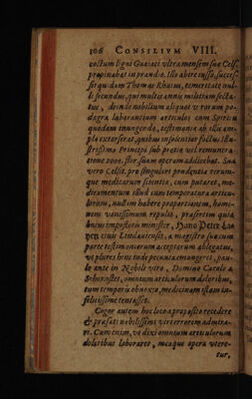 106 CONSILIVM VIII.
coctum ligni Guaiaci vltramensem sua Cels.
propinabat in prandio. Illo abire iusso, succes-
sit quidam Thomas Rhaim, temeritate nul-
li secundus, qui multis annis militiam secta-
tus, deinde nobilium aliquot et rarum po-
dagra laborantium articulos cum Spiritu
quodam inungendo, testimonia ab illis am-
pla extorserat, quibus insolentius fultus Illu-
strissimo Principi sub pretio vel remunera-
tione 2000. flor. suam operam addicebat. Sua
vero Celsit. pro singulari prudentia rerum-
que medicarum scientia, cum putaret, me-
dicamentum illud cum temperatura articu-
lorum, nullam habere proportionem, homi-
nem vanissimum repulit, praesertim quia
huius impostoris minister, Hans Peter
pen ciuis Lindauiensis, a magistro
parte testimoniorum acceptorum ablegatus,
vt plures hoc modo pecunias emungeret, pau-
lo ante in Nobili viro, Domino Carolo a
Schurpffer, omnium articulorum doloribus,
tum temporis obnoxio, medicinam istam in-
felicissime tentasset.
Cogor autem hoc loco a proposito recedere
& praefati nobilissimi viri errorem admira-
ri. Cum enim, vt dixi omnium articulorum
doloribus laboraret, meaque opera vtere-
tur,